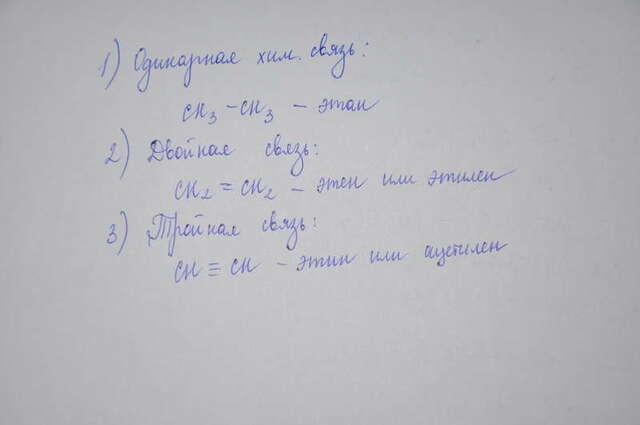 1) Одинарная хим. связь:
CH₃ – CH₃ – этан
2) Двойная связь:
CH₂ = CH₂ – этен или этилен
3) Тройная связь:
CH ≡ CH – этин или ацетилен